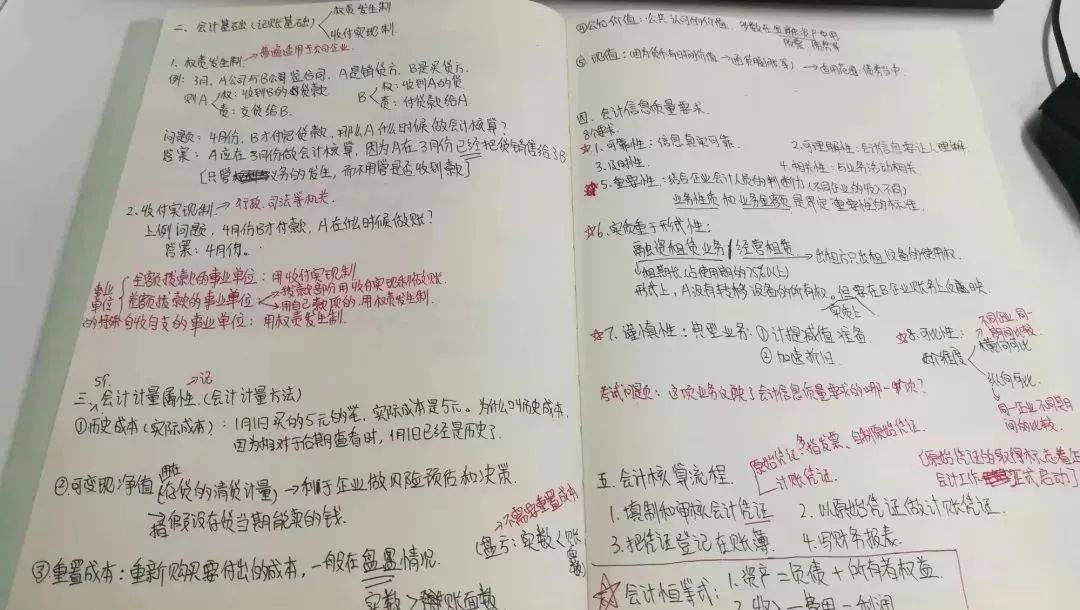 二、会计基础(记账基础)
权责发生制
收付实现制
1. 权责发生制→普遍适用于公司企业
例:3月,A公司与B公司签合同,A是销货方,B是买货方.
则A 权:收到B的货款
责:交货给B.
B 权:收到A的货
责:付货款给A
问题:4月份,B才付完货款,那么A什么时候做会计核算?
答案:A应在3月份做会计核算,因为A在3月份已经把货销售给了B
[只管业务的发生,而不用管是否收到款]
2. 收付实现制→行政、司法等机关.
上例问题,4月份B才付款,A在什么时候做账?
答案:4月份.
事业单位
全额拨款的事业单位:用收付实现制
差额拨款的事业单位
拨款部分用收付实现制做账.
用自己款项的,用权责发生制.
自收自支的事业单位:用权责发生制.
5个.
→记
三、会计计量属性.(会计计量方法)
①历史成本(实际成本):1月1日买的5元的笔,实际成本是5元。为什么叫历史成本,
因为相对于后期查看时,1月1日已经是历史了.
②可变现净值(存货的清货计量)→利于企业做风险预估和决策.
用在
指假设存货当期能卖的钱.
→不需要重置成本
③重置成本:重新购买要付出的成本,一般在盘盈情况.
(盘亏:实数<账面数)
实数>账面数
④公允价值:公共认可的价值
⑤现值:因为货币有时间价值
四、会计信息质量要求.
8个要求.
☆1. 可靠性:信息真实可靠.
2. 可理解性:会计信息要让人理解.
3. 及时性.
4. 相关性:与业务活动相关
☆5. 重要性:结合企业会计人员的判断力(不同企业的收入不同)
业务性质和业务金额是界定重要性的标准.
☆6. 实质重于形式性:
融资租赁业务/经营租赁→出租方只出租设备的使用权.
租期长(占使用期的75%以上)
形式上,A没有转移设备的所有权.但要在B企业账务上反映.
实质上
☆7. 谨慎性:典型业务:①计提减值准备.
②加速折旧
☆8. 可比性:
两个维度
不同企业,同一期间比较
横向可比
纵向可比.
同一企业不同期间的比较.
考试问题:这项业务反映了会计信息质量要求的哪一项?
五、会计核算流程.
原始凭证→指发票、自制原始凭证.
记账凭证.
(原始凭证的取得标志着正
会计工作正式启动]
1. 填制和审核会计凭证
2. 以原始凭证做记账凭证.
3. 把凭证登记在账簿.
4. 写财务报表.
☆会计恒等式:1. 资产=负债+所有者权益.
2. 收入-费用=利润